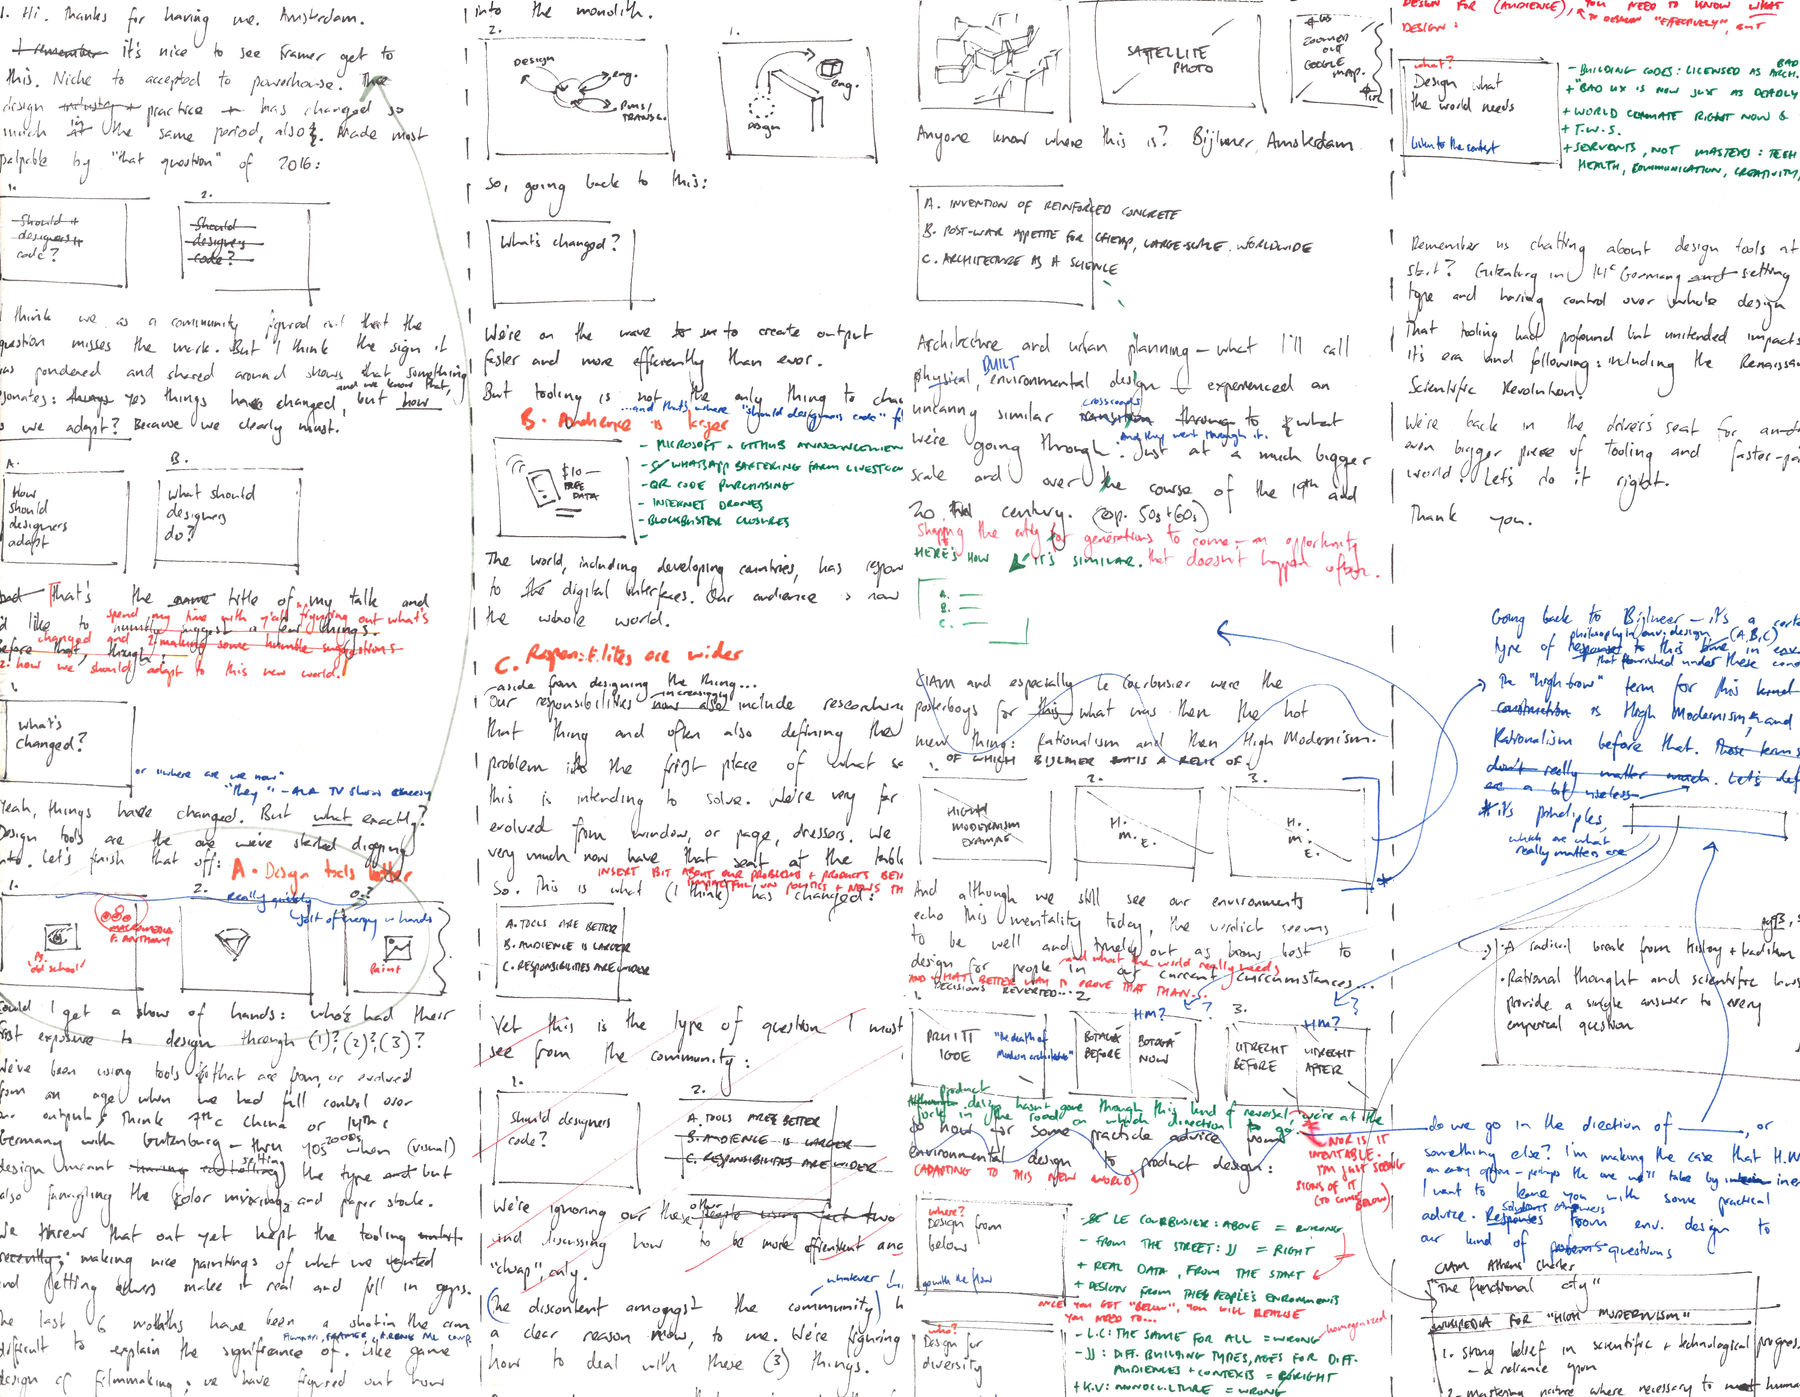 1. Hi. Thanks for having me. Amsterdam.
I remember it's nice to see Framer get to
this. Niche to accepted to powerhouse. The
design industry + practice + has changed so
much in the same period, also. Made most
palpable by "that question" of 2016:
1.
2.
Should
designers
code?
Should
designers
code?
think we as a community figured out that the
question misses the mark. But I think the sign it
was pondered and shared around shows that something
and we know that,
resonates: Always yes things have changed, but how
do we adapt? Because we clearly must.
A.
B.
How
should
designers
adapt
what should
designers
do?
that's the name title of my talk and
spend my time with y'all figuring out what's
I'd like to humbly suggest a few things.
changed and 2. making some humble suggestions
Before that, though:
2. how we should adapt to this new world.
1.
what's
changed?
or "where are we now"
Yeah, things have changed. But what exactly?
Design tools are the one we've started digging
into. Let's finish that off: A. Design tools better
1.
2. Really quickly
Ps
"old school"
MACROMEDIA
sort of energy w hands
Paint
Could I get a show of hands: who's had their
first exposure to design through (1)?, (2)?, (3)?
We've been using tools that are from or evolved
from an age when we had full control over
our outputs; think 7th c China or 14th c
Germany with Gutenburg - thru 90s 2000s when (visual)
design meant setting the type and but
also fangling the color mixing and paper stock.
We threw that out yet kept the tooling
recently; making nice paintings of what we wanted
and getting others make it real and fill in gaps.
The last 6 months have been a shot in the arm
difficult to explain the significance of. Like game
design or filmmaking; we have figured out how
into the monolith.
2.
1.
Design
eng.
PMs/
TRANSL.
design
eng.
So, going back to this:
What's changed?
We're on the wave to create output
faster and more efficiently than ever.
But tooling is not the only thing to
...and that's where "should designers code"
B. Audience is larger
$10-
FREE
DATA
- MICROSOFT + GITHUB ANNOUNCEMEN
- WHATSAPP BARTERING FARM LIVESTOC
- QR CODE PURCHASING
- INTERNET DRONES
- BLOCKBUSTER CLOSURES
The world, including developing countries, has
to the digital interfaces. Our audience is now
the whole world.
C. Responsibilities are wider
aside from designing the thing...
increasingly
Our responsibilities now also include researching
that thing and often also defining the
problem in the first place of what
this is intending to solve. We're very far
evolved from window, or page, dressers. We
very much now have that seat at the table
INSERT BIT ABOUT OUR PROBLEMS + PRODUCTS BEIN
IMPACTFUL ON POLITICS + NEWS TH
So. This is what (I think) has changed:
A. TOOLS ARE BETTER
B. AUDIENCE IS LARGER
C. RESPONSIBILITIES ARE WIDER
Yet this is the type of question I must
see from the community:
1.
2.
should designers
code?
A. TOOLS ARE BETTER
B. AUDIENCE IS LARGER
C. RESPONSIBILITIES ARE WIDER
other
We're ignoring our these people using just two
and discussing how to be more efficient and
"cheap", only.
whatever
(The discontent amongst the community)
a clear reason now, to me. We're figuring
how to deal with these (3) things.
SATELLITE
PHOTO
ZOOMED
OUT
GOOGLE
MAP.
Anyone know where this is? Bijlmer, Amsterdam
A. INVENTION OF REINFORCED CONCRETE
B. POST-WAR APPETITE FOR CHEAP, LARGE-SCALE. WORLDWIDE
C. ARCHITECTURE AS A SCIENCE
Architecture and urban planning - what I'll call
BUILT
physical, environmental design - experienced an
crossroads
uncanny similar transition through to what
And they went through it.
we're going through. Just at a much bigger
scale and over the course of the 19th and
20 century. (esp. 50s+60s)
shaping the entity for generations to come - an opportunity
HERE'S HOW IT'S SIMILAR. that doesn't happen often.
A.
B.
C.
CIAM and especially Le Courbusier were the
posterboys for this what was then the hot
new thing: Rationalism and then High Modernism.
OF WHICH BIJLMER IS A RELIC OF.
1.
2.
3.
HIGH
MODERNISM
EXAMPLE
H.
M.
E.
H.
M.
E.
And although we still see our environments
echo this mentality today, the verdict seems
to be well and truely out as how best to
and what the world really needs
design for people in our current circumstances...
AND WHAT BETTER WAY TO PROVE THAT THAN...
DECISIONS REVERTED...
2.
HM?
3.
HM?
PRUITT
IGOE
"the death of
Modern architecture"
BOTAGA
BEFORE
BOTAGA
NOW
UTRECHT
BEFORE
UTRECHT
AFTER
product
design hasn't gone through this kind of reversal, we're at the
fork in the road on which direction to go.
So now for some practicle advice from
environmental design to product design:
(ADAPTING TO THIS NEW WORLD)
NOR IS IT
INEVITABLE.
I'M JUST SEEING
SIGNS OF IT
(TO COME
BELOW)
where?
Design from
below
go with the flow
- LE COURBUSIER: ABOVE = WRONG
- FROM THE STREET: JJ = RIGHT
+ REAL DATA, FROM THE START
+ DESIGN FROM THE PEOPLE'S ENVIRONMENTS
ONCE YOU GET "BELOW", YOU WILL REALISE
YOU NEED TO...
who?
Design for
diversity
- L.C: THE SAME FOR ALL = WRONG homogenized
- JJ: DIFF. BUILDING TYPES, AGES FOR DIFF.
AUDIENCES + CONTEXTS = RIGHT
+ K.V: MONOCULTURE = WRONG
DESIGN FOR (AUDIENCE), YOU NEED TO KNOW WHAT
DESIGN: TO DESIGN "EFFECTIVELY", BUT
what?
Design what
the world needs
listen to the context
BAD
- BUILDING CODES: LICENSED AS ARCH.
+ "BAD UX IS NOW JUST AS DEADLY
+ WORLD CLIMATE RIGHT NOW &
+ T.W.S.
+ SERVENTS, NOT MASTERS: TECH
HEALTH, COMMUNICATION, CREATIVITY,
Remember us chatting about design tools at
start? Gutenburg in 14c Germany and setting
type and having control over whole design
That tooling had profound but unitended impacts
it's era and following: including the Renaissan
Scientific Revolution.
We're back in the driver's seat for
even bigger piece of Tooling and faster-pa
world. Let's do it right.
Thank you.
Going back to Bijlmeer - it's a certa
philosophy in env. design (A, B, C)
type of response to this time in
that flourished under these cond
The "high-brow" term for this kind
construction is High Modernism, and
Rationalism before that. Those terms
don't really matter much. Let's def
are a bit useless
it's principles,
which are what
really matters are
· A radical break from History + tradition
· Rational thought and scientific laws
provide a single answer to every
emperical question
do we go in the direction of ____, or
something else? I'm making the case that H.M
an easy option - perhaps the one we'll take by
I want to leave you with some practical
solutions answers
advice. Responses from env. design to
our kind of problems questions
CIAM Athens Charter
"The functional city"
WIKIPEDIA FOR "HIGH MODERNISM"
1. strong belief in scientific + technological progress
- a reliance upon
2. mastering nature where necessary to meet human